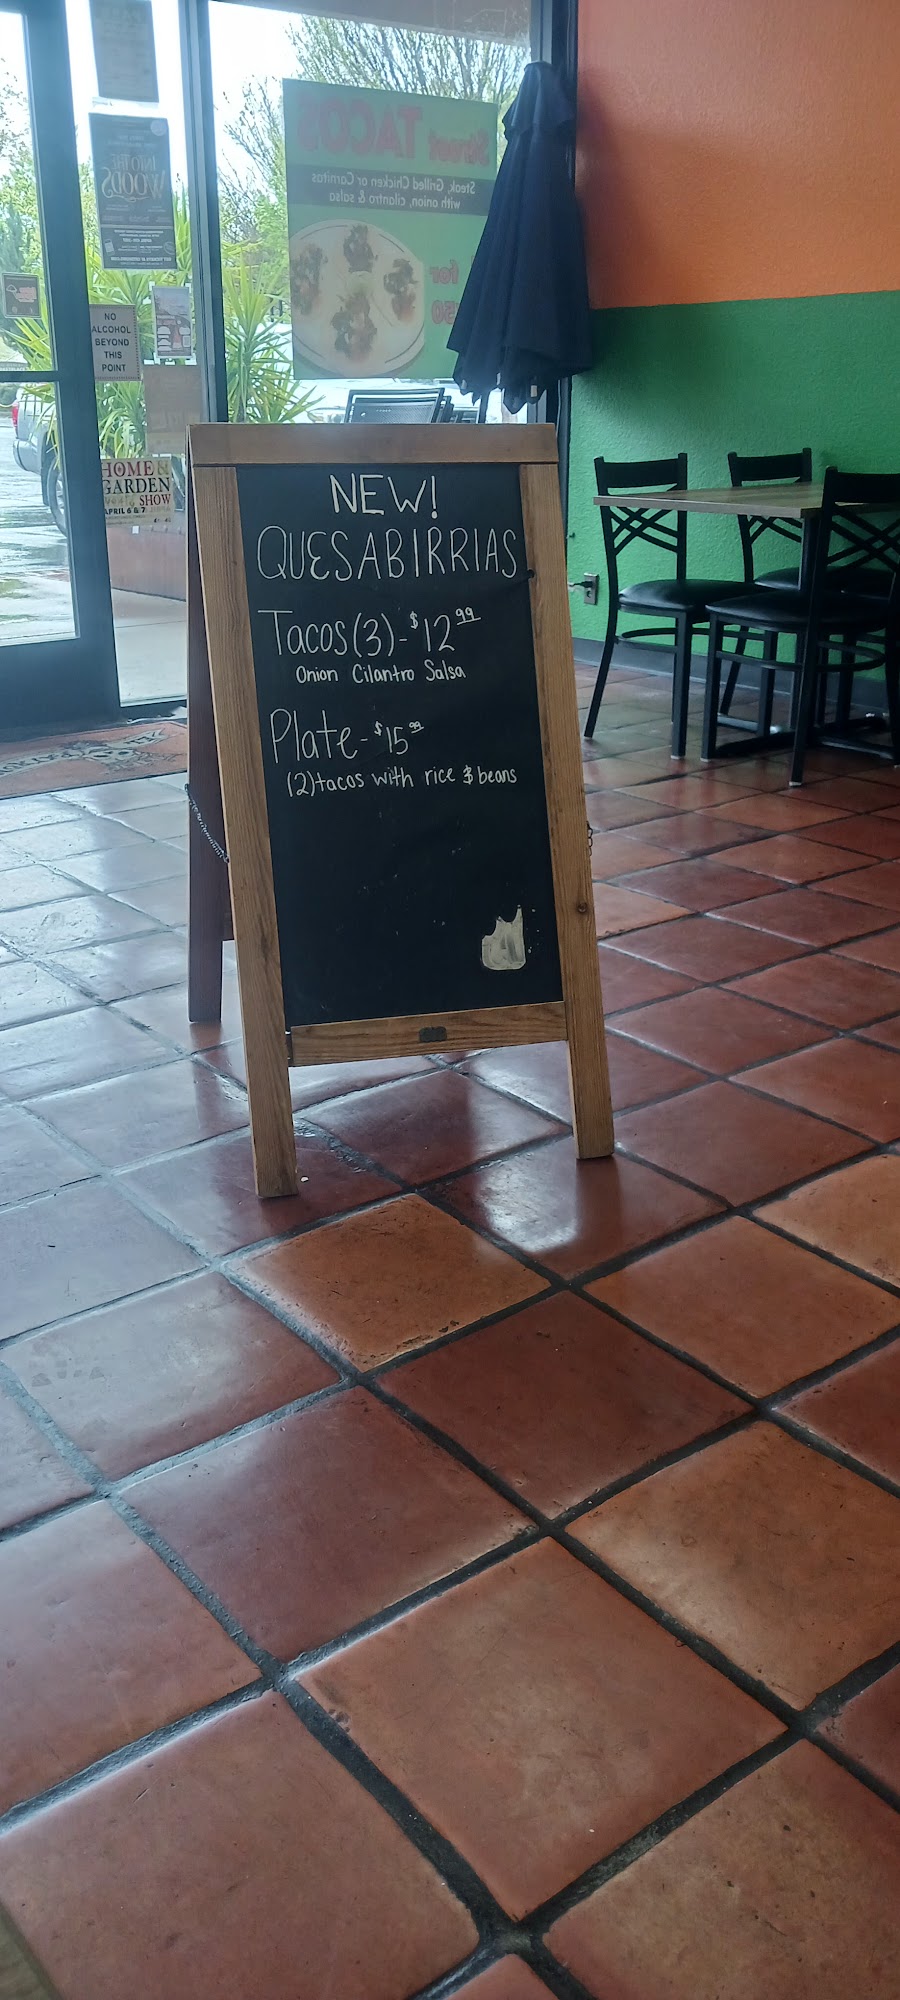 NEW!
QUESABIRRIAS
Tacos (3) - $12.99
Onion Cilantro Salsa
Plate - $15.99
(2) tacos with rice & beans
Street TACOS
Steak, Grilled Chicken or Carnitas
with onion, cilantro & salsa
for
50
INTO THE
WOODS
NO
ALCOHOL
BEYOND
THIS
POINT
HOME &
GARDEN
SHOW
APRIL 6 & 7